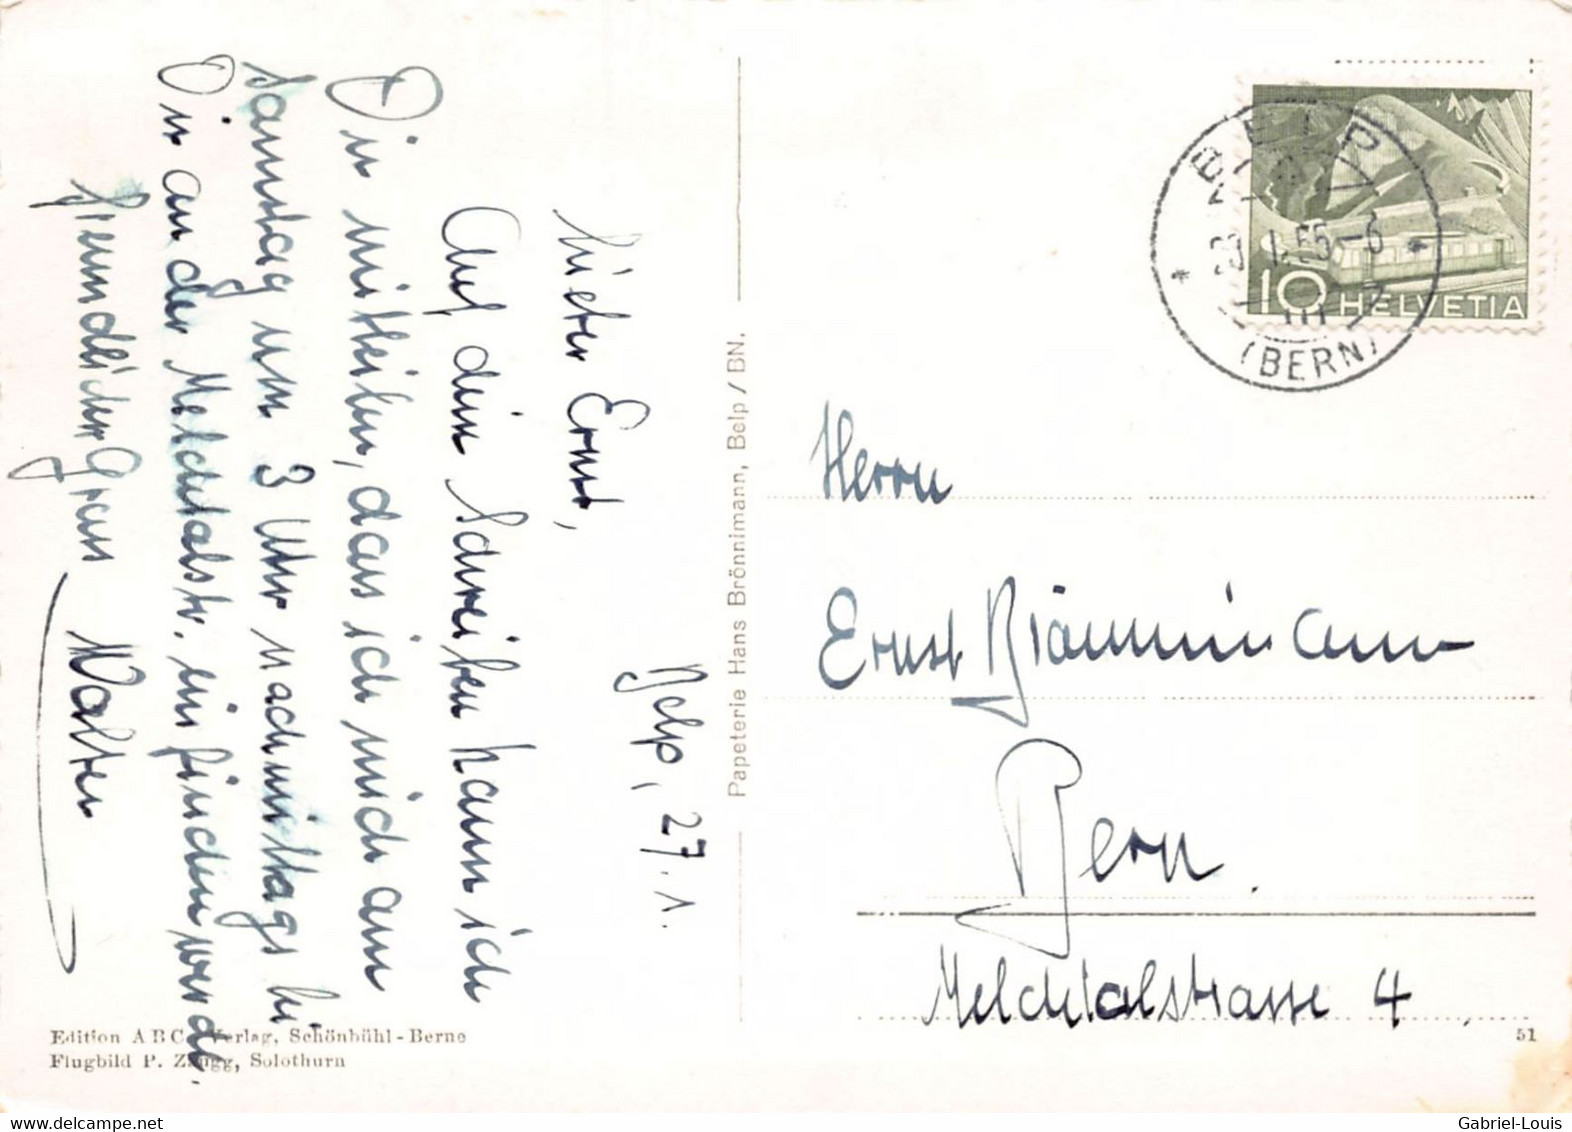 Belp, 27. 1.
Lieber Ernst,
Auf dein Schreiben kann ich
Dir mitteilen, dass ich mich am
Samstag um 3 Uhr nachmittags bei
Dir an der Melchtalstr. einfinden werde.
Freundlicher Gruss
Walter
Papeterie Hans Brönnimann, Belp / BN.
BELP
55-6
(BERN)
10 HELVETIA
Herrn
Ernst Brönnimann
Bern.
Melchtalstrasse 4
Edition ABC-Verlag, Schönbühl-Berne
Flugbild P. Zaugg, Solothurn
51
Gabriel-Louis
www.delcampe.net